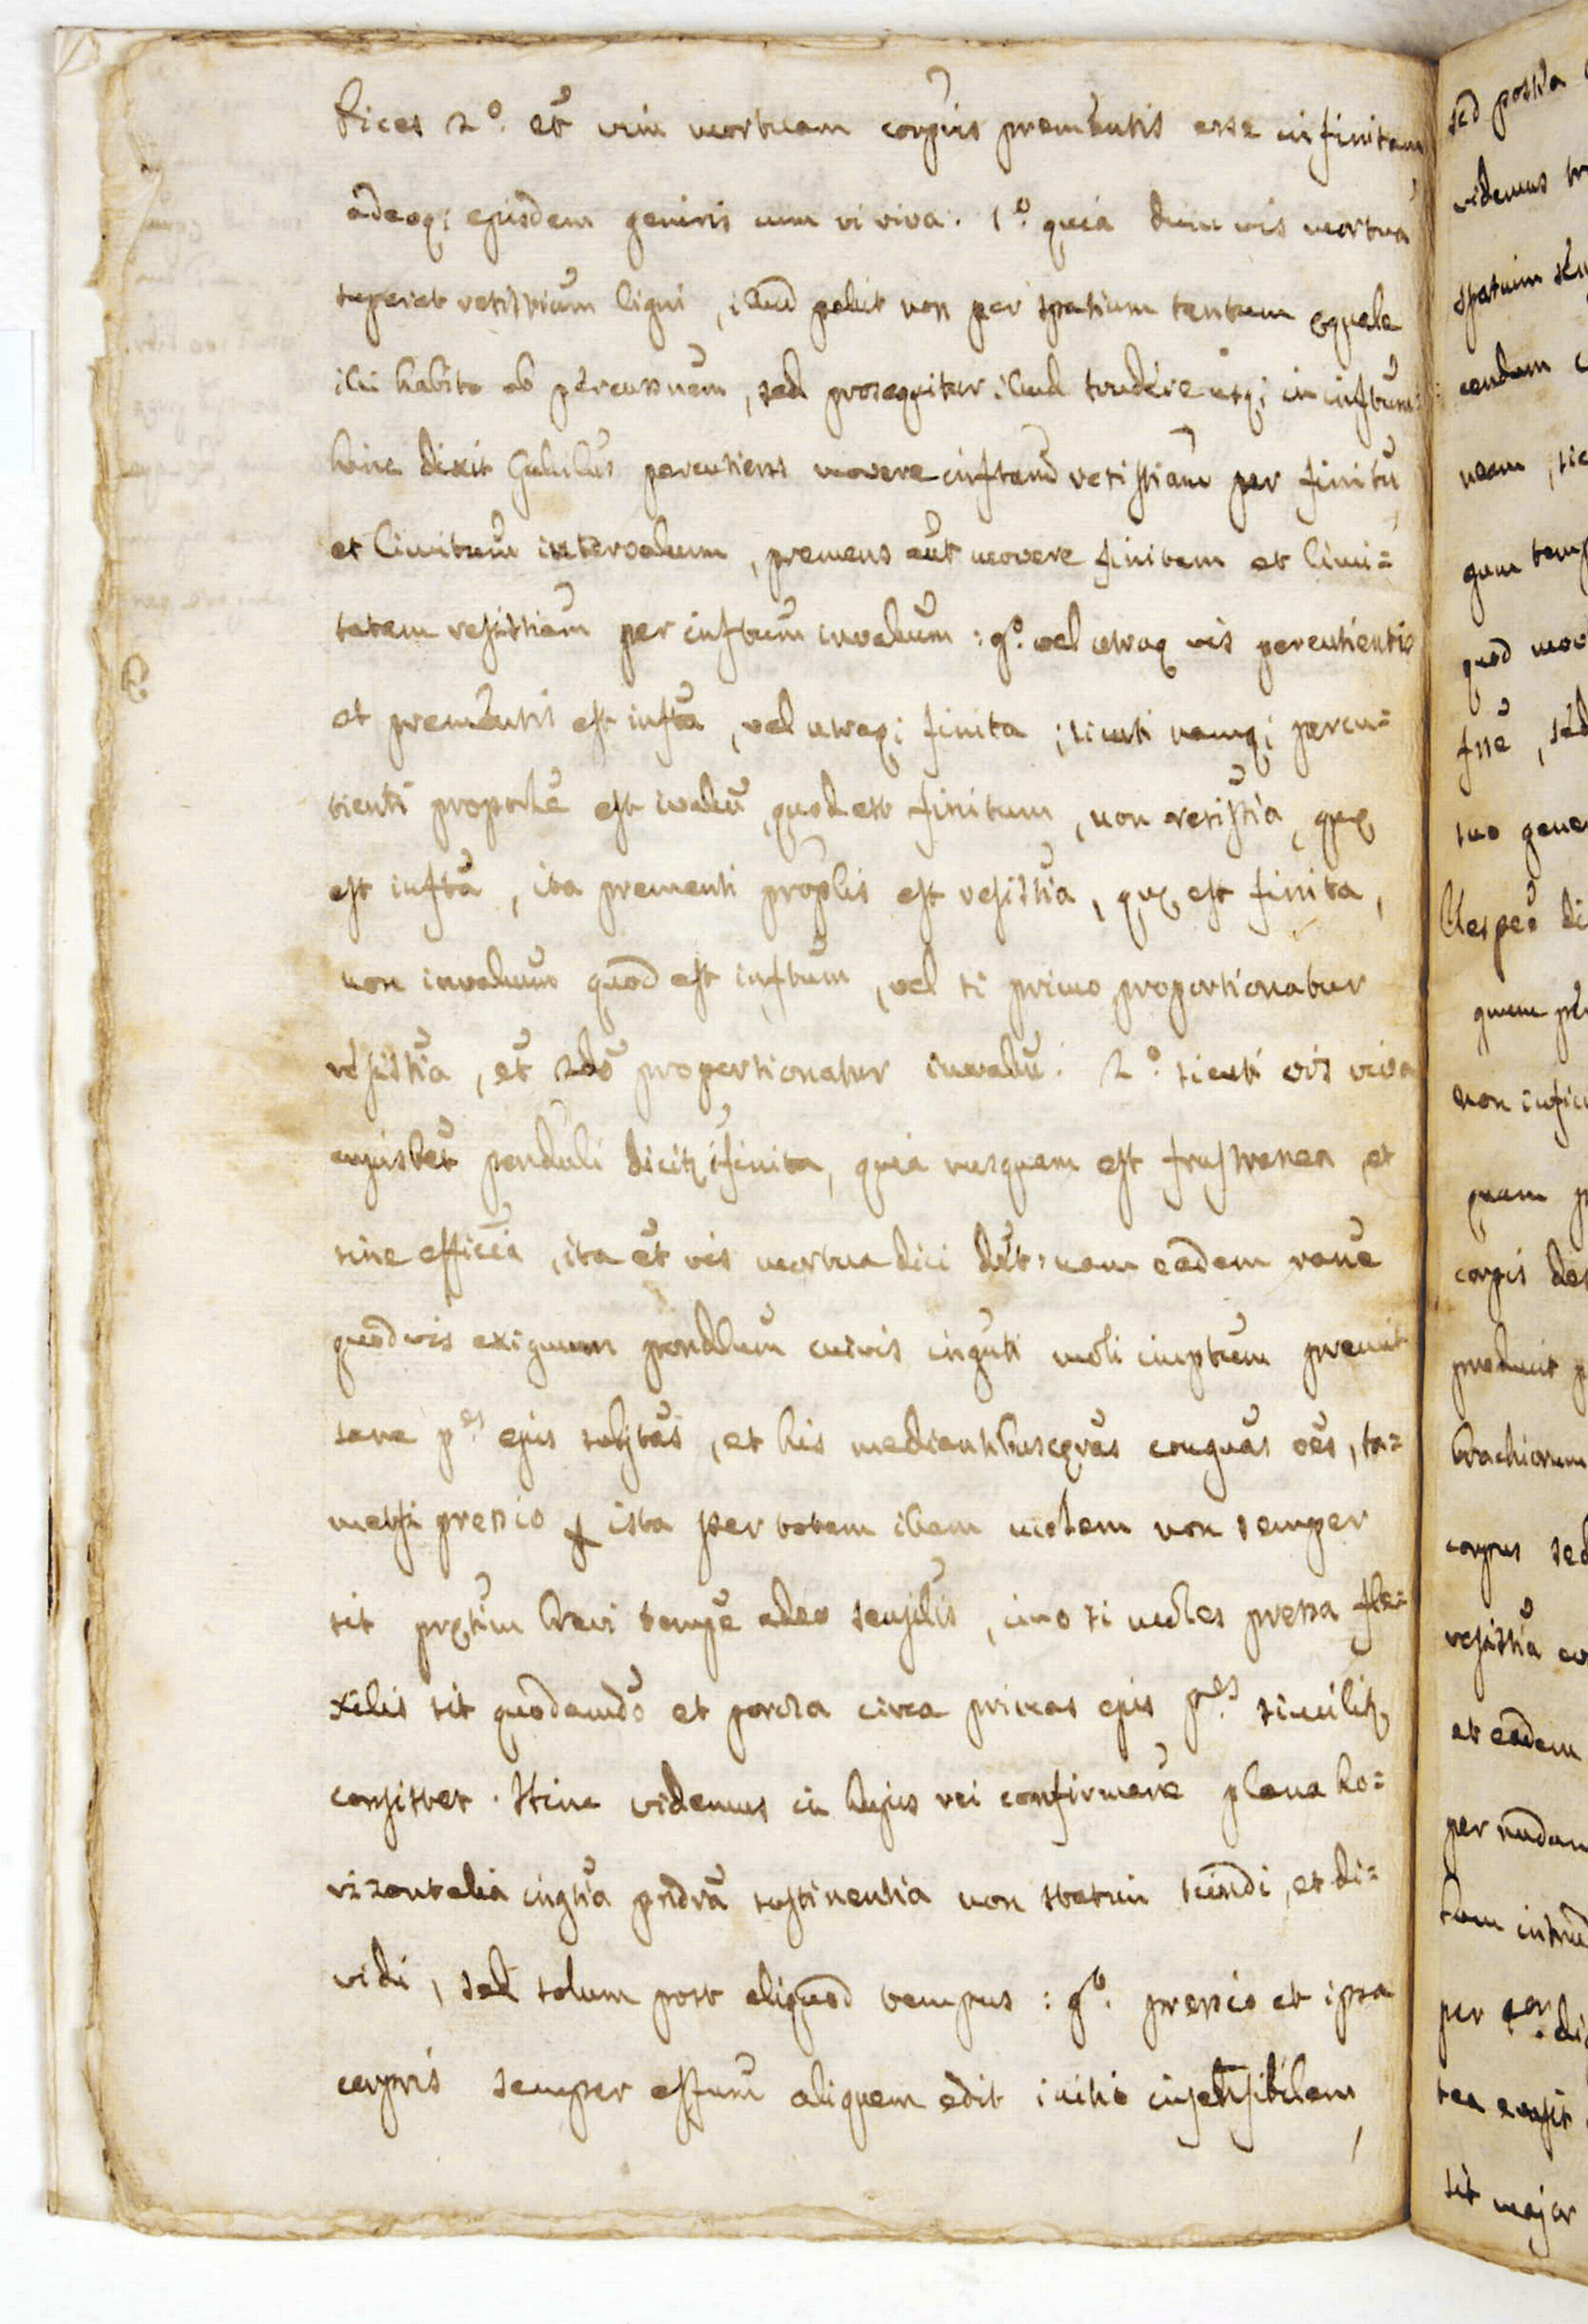 Dices 2º. et̃ vim mortuam corp̃is premẽntis esse infinitam
adeoq; ejusdem generis cum vi viva. 1º. quia dum vis mortua
superat resistĩam ligni, illud pellit non per spatium tantum equale
illi habito ab percussñem, sed prosequitur illud trudere usq; in inftum:
hinc dixit Galilus̃ percutiens movere inftam̃ resistiam̃ per finitũ
et limitum̃ intervalum, premens aũt movere finitam et limi=
tatam resistiam̃ per inftum̃ invalum: gº. vel utraq vis percutientis
et premẽntis est inftã, vel utraq; finita; sicuti namq; percu=
tienti proportlẽ est ivalũ, quod est finitum, non resistĩa, quę
est inftã, ita prementi proplis̃ est resistĩa, quę est finita,
non invalum̃ quod est inftum̃, vel si primo proportionatur
resistĩa, et̃ 2dõ proportionatur invalũ. 2º. sicuti vis viva
cujusbet̃ penduli dicitʒ ifinita, quia nusquam est frustranea et
sine efficĩa, ita et̃ vis mortua dici debt̃: nam eadem ranẽ
quodvis exiguum pondlum̃ cuivis inguti moli imptum̃ premit
sane p.es ejus subjtas̃, et his mediantibus contguas̃ oẽs, ta=
metsi pressio ista per totam illam molem non semper
sit pręstim̃ brevi tempẽ adeo sensilis̃, imo si moles pressa fle=
xilis sit quodamdõ et porosa circa primas ejus p.es similitʒ
consistet. Hinc videmus in hujus rei confirmanẽ plana ho=
rizontalia ingtĩa pndrã sustinentia non statim scindi, et di=
vidi, sed solum post aliquod tempus: gº. pressio et ipsa
corpris̃ semper effum̃ aliquem edit initio insensibilem,
sed postea
videmus
spatium
eandem
neam, sic
quam temp
quod mov
fne, sed
suo gene
Respeõ di
non infin
quam p
corpis des
producit p
brachiorum
corpus sed
resistĩa
et eadem
per nudam
tam
per
tea evasit
sit major